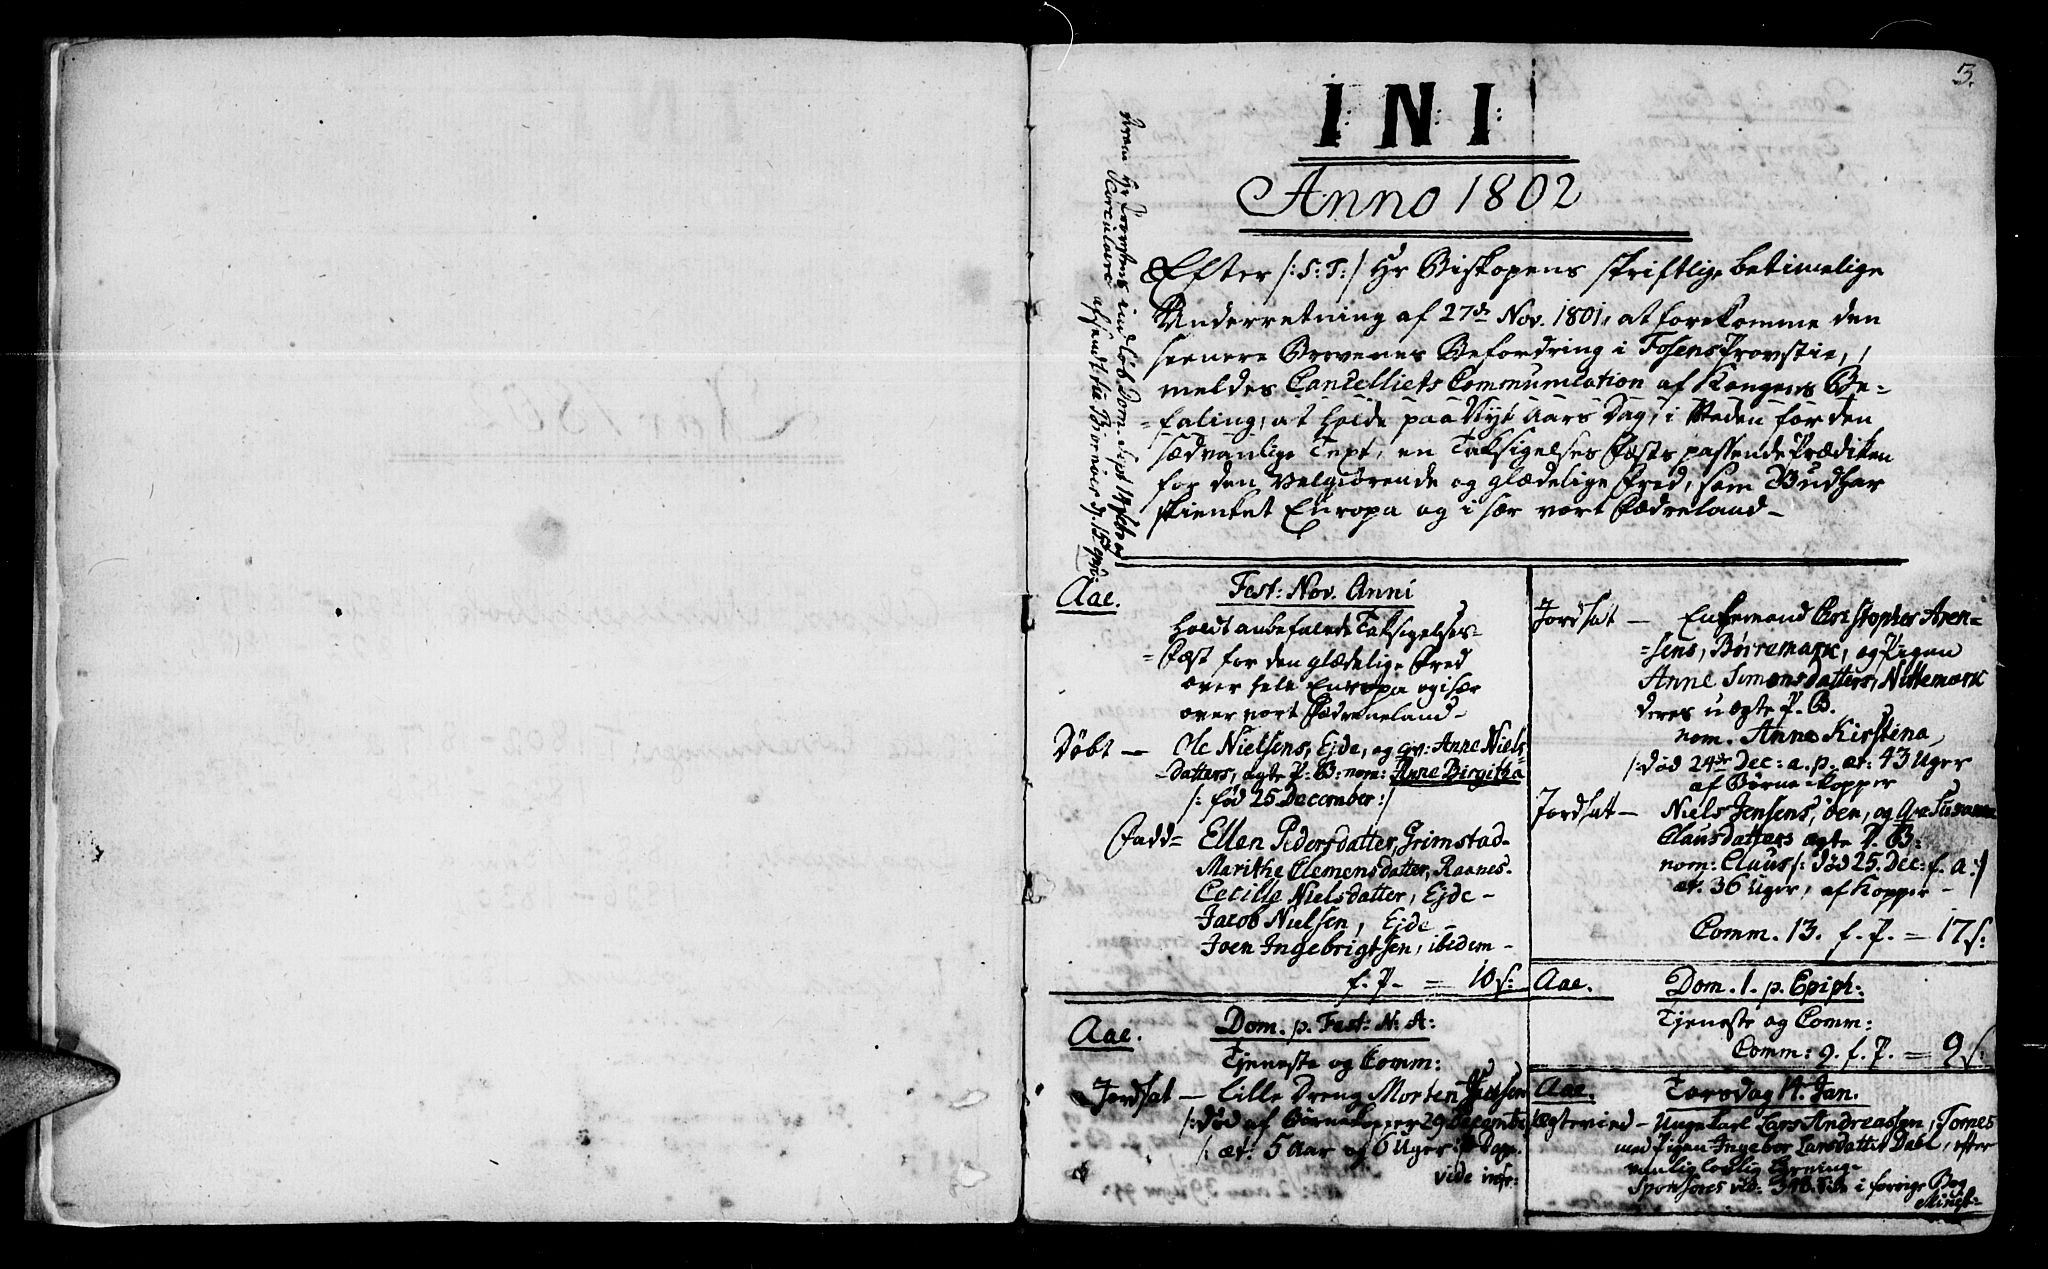 3.
I: N: I:
Anno 1802
Efter /:S:T:/ Hr Biskopens skriftlige betimelige
Underretning af 27de Nov. 1801, at forekomme den
seenere Brevenes Befordring i Fosens Provstie,
meldes Cancelliets Communication af Kongens Be-
=faling, at holde paa Nyt Aars Dag, i Steden for den
sædvanlige Text, en Taksigelses Fæsts passende Prædiken
for den velgiørende og glædelige Fred, som Gud har
skienket Europa og i sær vort Fædreland-
Hr Provstens
Circulaire afsendt til
Aae.
Fest: Nov. Anni
Holdt anbefalede Taksigelses-
=Fæst for den glædelige Fred
over hele Europa og i sær
over vort Fædreneland-
Døbt — Ole Nielsens, Ejde, og Qv: Anne Niels-
-datters, ægte P: B: nom: Anne Birgitha
/: fød 25 December :/
Fadd= Ellen Pedersdatter, Grimstad-
Marithe Clemensdatter, Raanes.
Cecille Nielsdatter, Ejde-
Jacob Nielsen, Ejde-
Joen Ingebrigtsen, ibidem-
f. P. = 10 s:
Aae.
Dom. p. Fest: N: A:
Tjeneste og Comm:
Jordsat — Lille Dreng Morten
/: død af Børnekopper 29 Decembr
/: æt. 5 Aar og 6 Uger
vide infr:
Jordsat — Enkemand Christopher Aren-
=sens, Børremark, og Pigen
Anne Simonsdatters, Nittemark
deres uægte P. B.
nom. Anne Kirstina,
/: død 24de Dec: a. p. æt: 43 Uger
af Børne-Kopper
Jordsat — Niels Jensens, Øen, og
Clausdatters ægte P. B:
nom: Claus /: død 25. Dec: f. a:/
æt. 36 Uger, af Kopper-
Comm. 13. f. P. = 17 s:
Aae.
Dom. 1. p. Epiph:
Tjeneste og Comm:
Comm: 9. f. P. = 9 s:
Aae.
Torsdag 14. Jan.
Ægteviet — Ungekarl Lars Andreassen, Tornes
med Pigen Ingebor Larsdatter Dahl, efter
vanlig lovlig Lysning-
Sponsores vid: i forrige Bog
Minist-